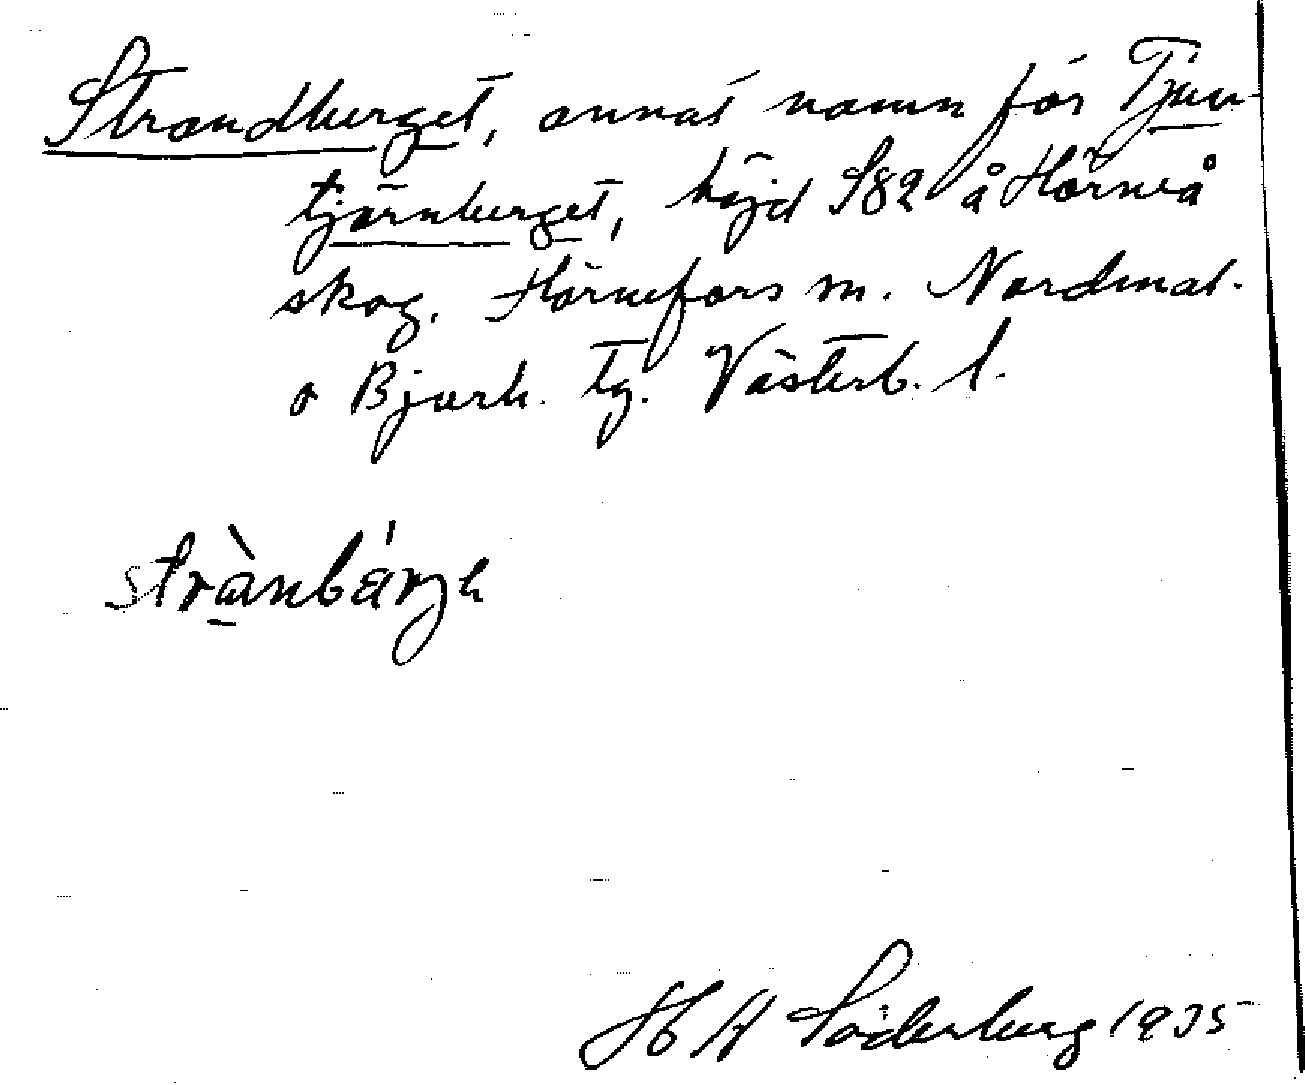 Strandberget, annat namn för Tjuv-
tjärnberget, höjd S82 å Hörneå
skog. Hörnefors m. Nordmal.
o Bjurh. tg. Västerb. l.
H A Söderberg 1935